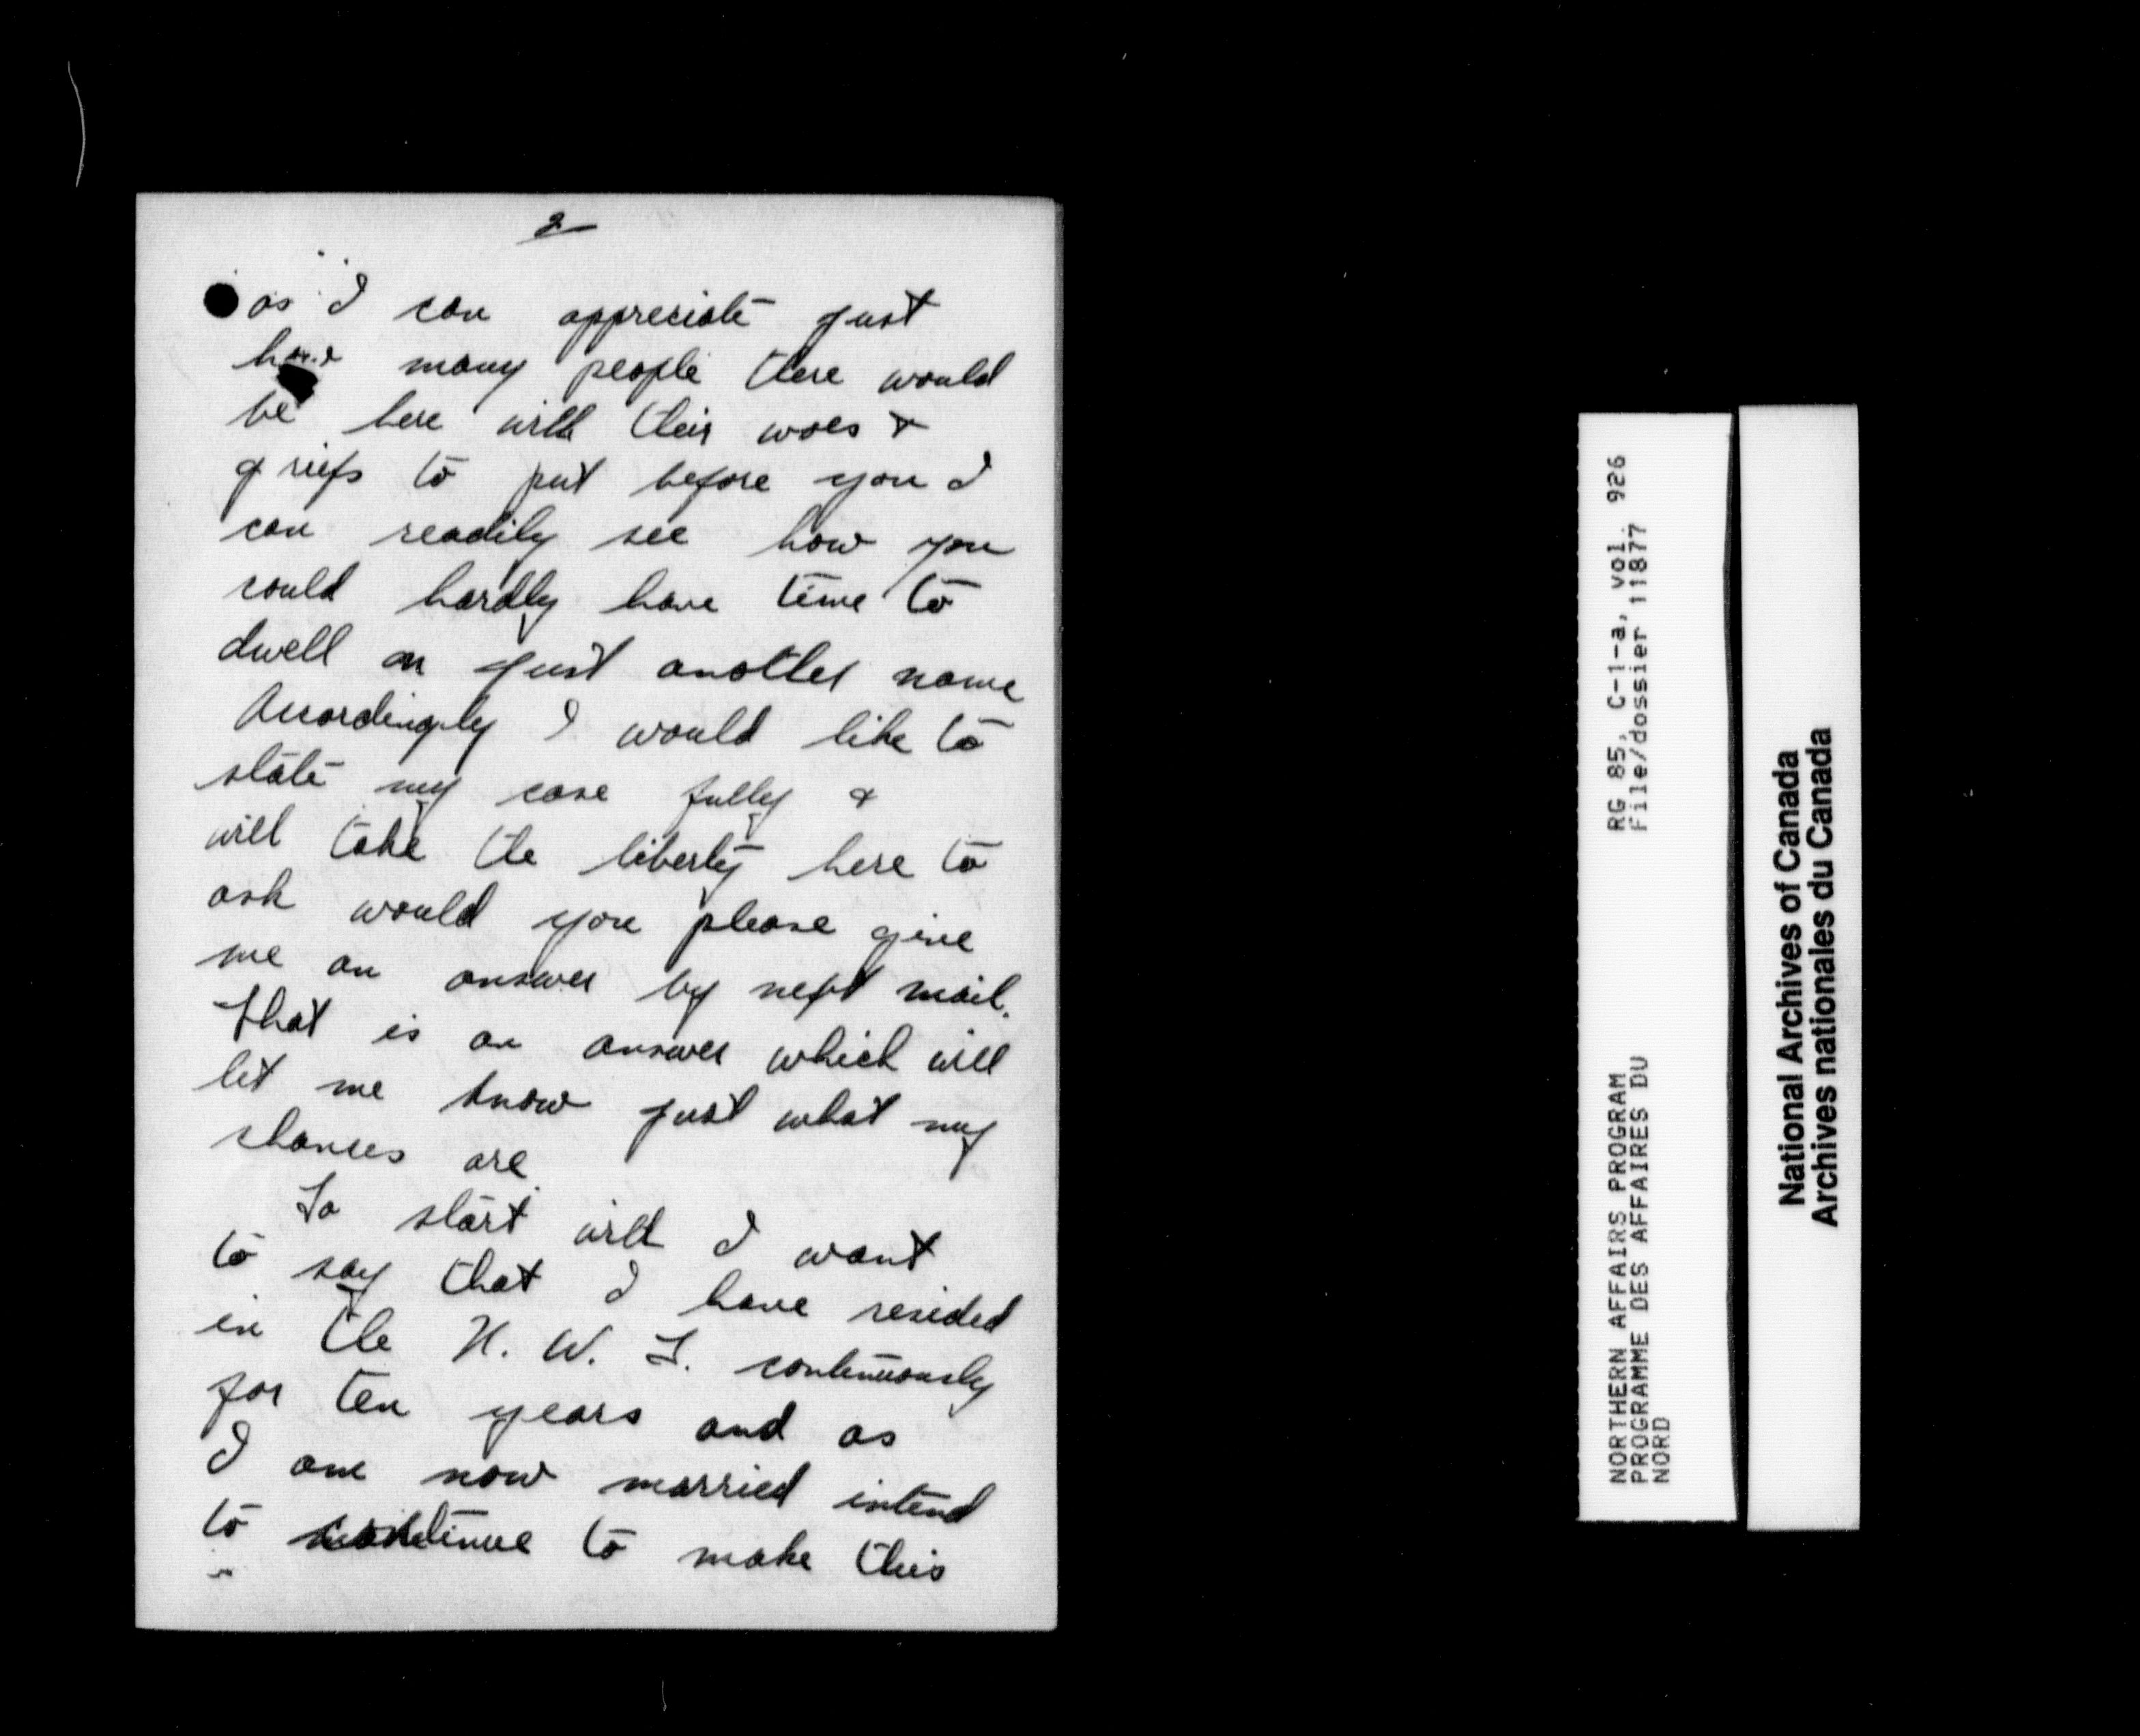 2
as I can appreciate just
how many people there would
be here with their woes &
griefs to put before you I
can readily see how you
could hardly have time to
dwell on just another name
Accordingly I would like to
state my case fully &
will take the liberty here to
ask would you please give
me an answer by next mail.
That is an answer which will
let me know just what my
chances are
To start with I want
to say that I have resided
in the N. W. T. continuously
for ten years and as
I am now married intend
to continue to make this
RG 85, C-1-a, vol. 926
File/dossier 11877
NORTHERN AFFAIRS PROGRAM
PROGRAMME DES AFFAIRES DU
NORD
National Archives of Canada
Archives nationales du Canada